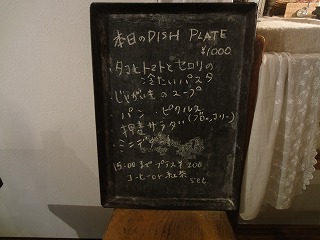 本日のDISH PLATE
¥1000
・タコとトマトとセロリの
冷たいパスタ
・じゃがいものスープ
・パン ・ピクルス
(ブロッコリー)
・押麦サラダ
・ミニデザート
15:00まで プラス¥200
コーヒー or 紅茶
set